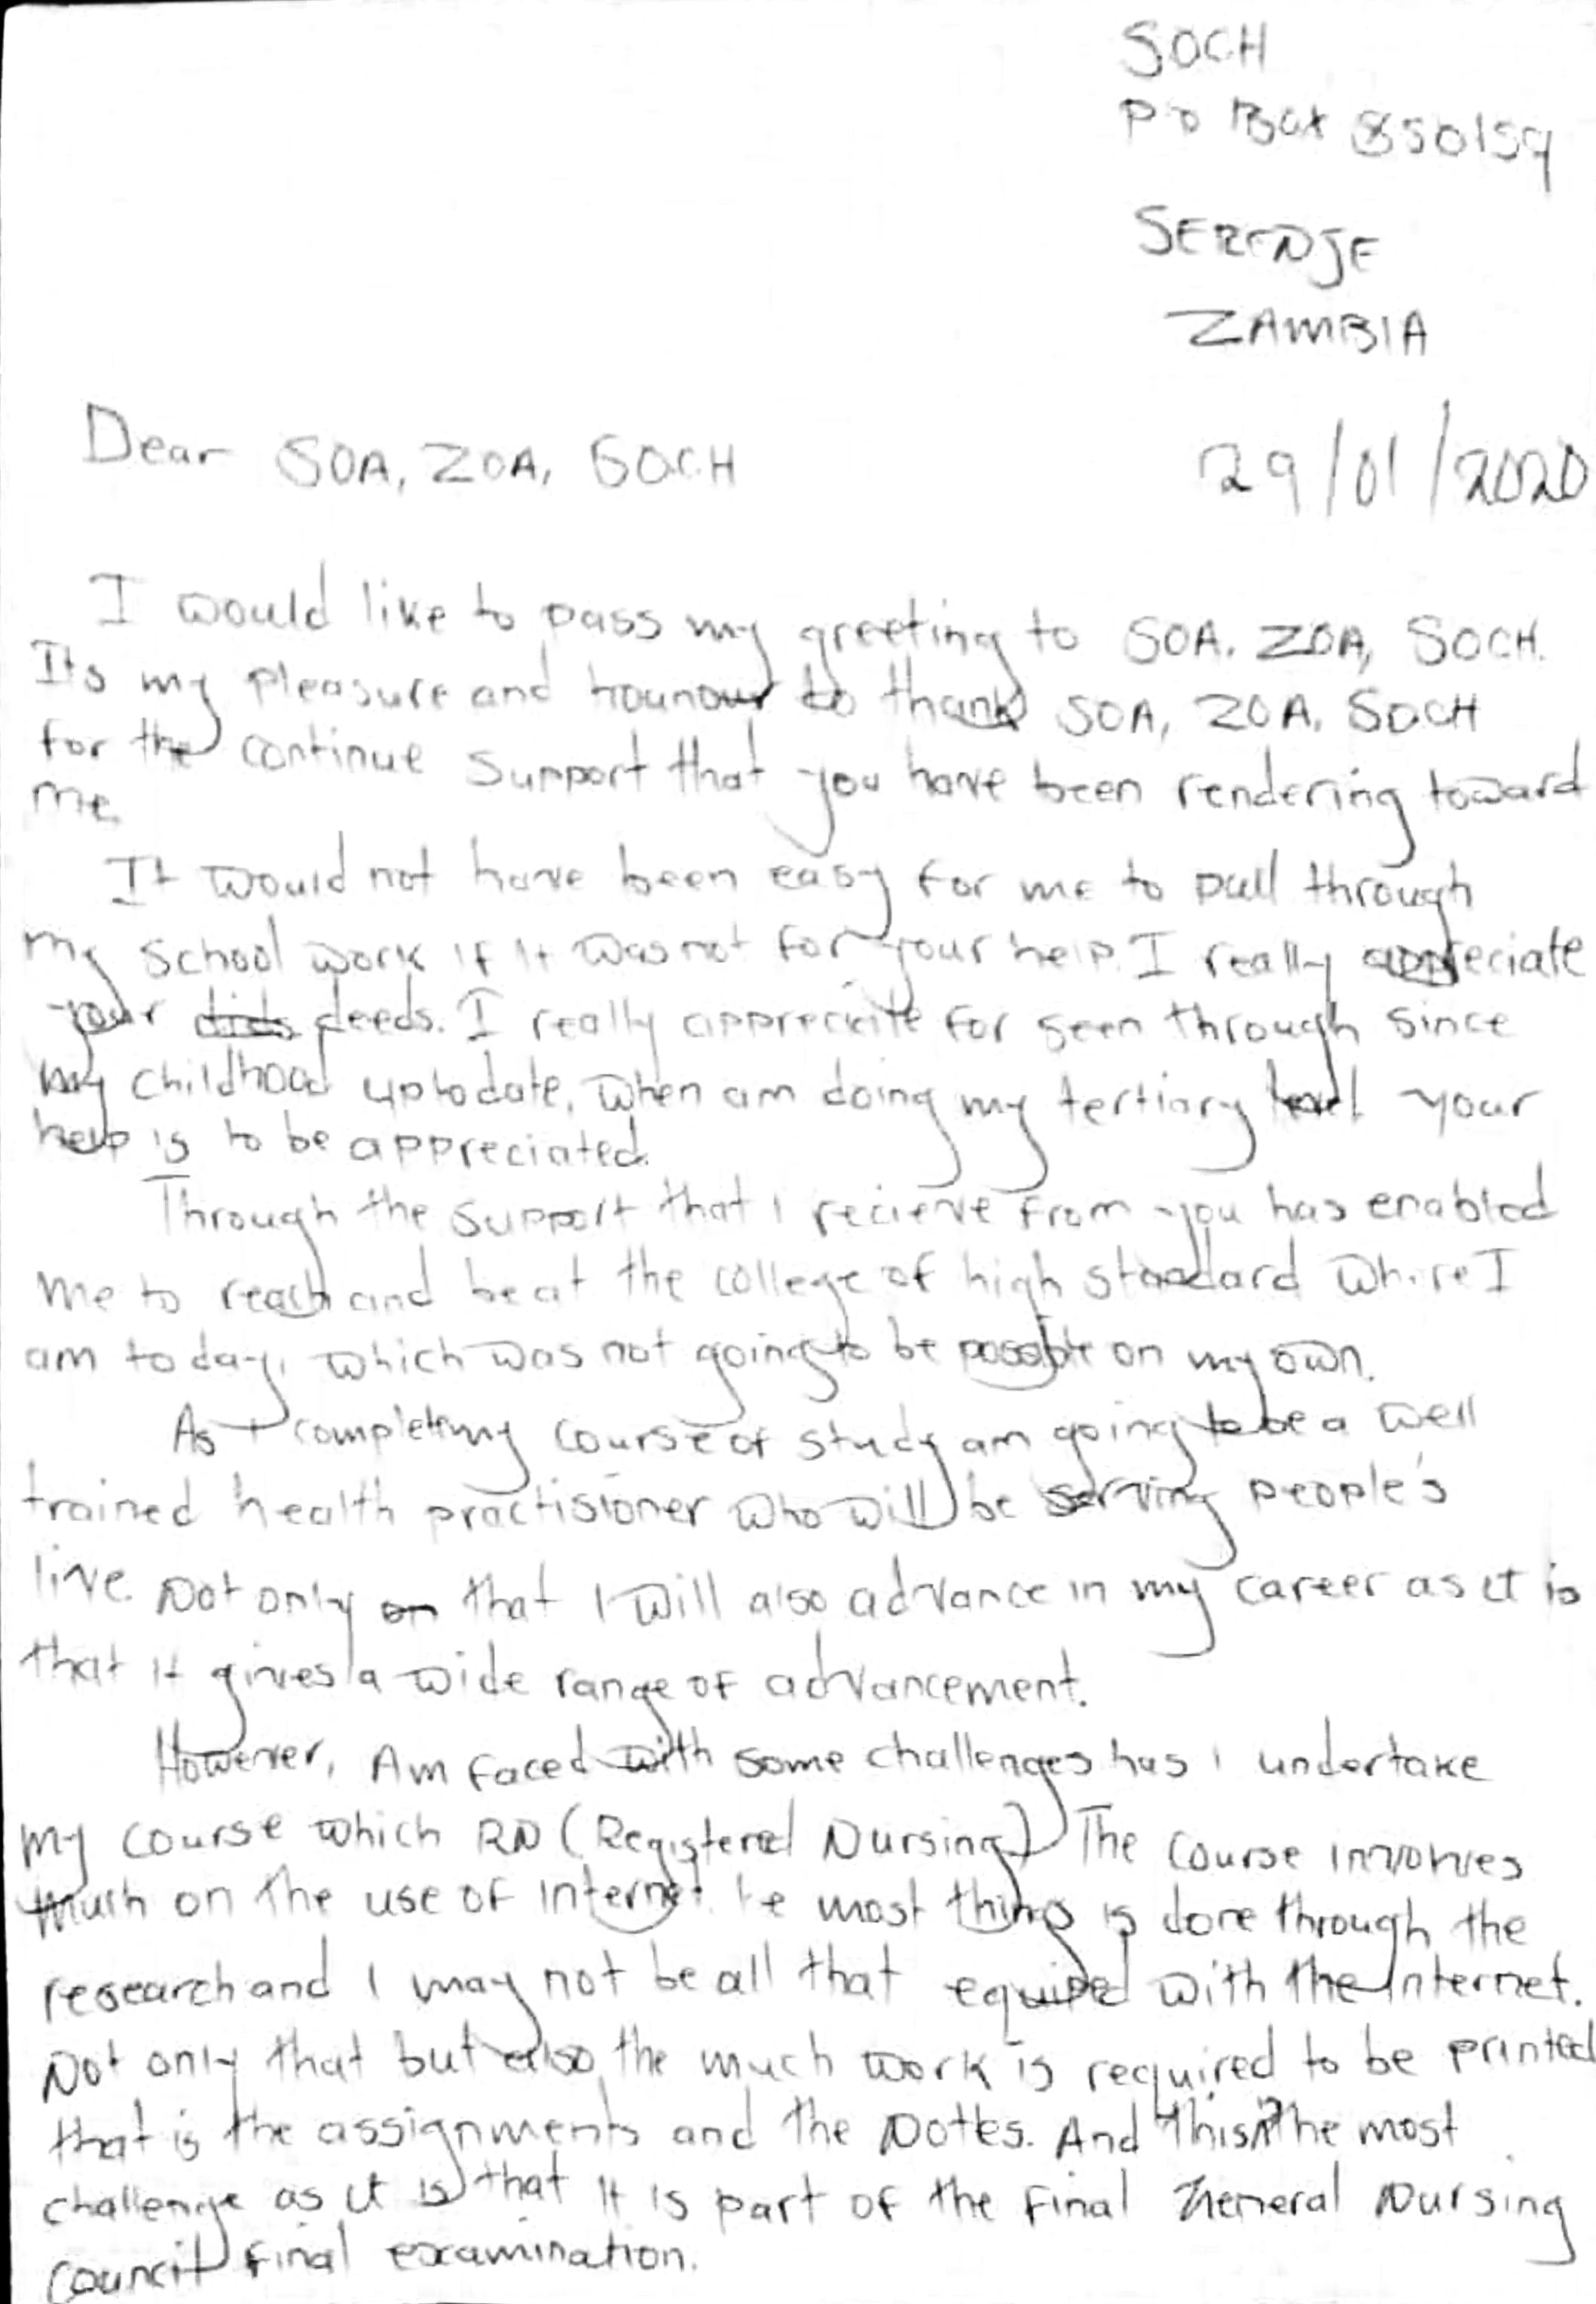 SOCH
PO Box 850159
SERENJE
ZAMBIA
Dear SOA, ZOA, SOCH
29/01/2020
I would like to pass my greeting to SOA, ZOA, SOCH.
Its my pleasure and hounour to thank SOA, ZOA, SOCH
for the continue support that you have been rendering toward
me.
It would not have been easy for me to pull through
my school work if it was not for your help. I really appreciate
your dids deeds. I really appreciate for seen through since
my childhood uptodate, when am doing my tertiary level your
help is to be appreciated.
Through the support that I recieve from you has enabled
me to reach and be at the college of high standard where I
am today, which was not going to be possible on my own.
As I completing course of study am going to be a well
trained health practisioner who will be serving people's
live. Not only on that I will also advance in my career as it is
that it gives a wide range of advancement.
However, Am faced with some challenges has I undertake
my course which RN (Registered Nursing) The course involves
much on the use of internet. Ie most things is done through the
research and I may not be all that equiped with the internet.
Not only that but also the much work is required to be printed
that is the assignments and the Nottes. And this is the most
challenge as it is that it is part of the final General Nursing
council final examination.